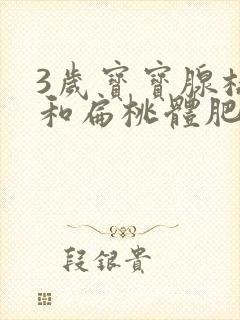 3歲寶寶腺
和扁桃體肥
段銀貴